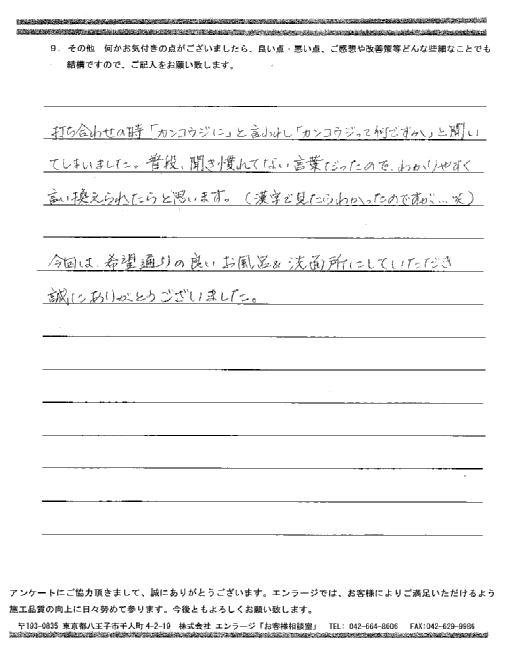 9. その他　何かお気付きの点がございましたら、良い点・悪い点、ご感想や改善策等どんな些細なことでも
結構ですので、ご記入をお願い致します。
打ち合わせの時「カンコウジに」と言われ「カンコウジって何ですか」と聞い
てしまいました。普段、聞き慣れてない言葉だったので、わかりやすく
言い換えられたらと思います。（漢字で見たらわかったのですが…笑）
今回は、希望通りの良いお風呂&洗面所にしていただき
誠にありがとうございました。
アンケートにご協力頂きまして、誠にありがとうございます。エンラージでは、お客様によりご満足いただけるよう
施工品質の向上に日々努めて参ります。今後ともよろしくお願い致します。
〒193-0835 東京都八王子市千人町4-2-19　株式会社 エンラージ「お客様相談室」　TEL: 042-664-8606　FAX:042-629-9986